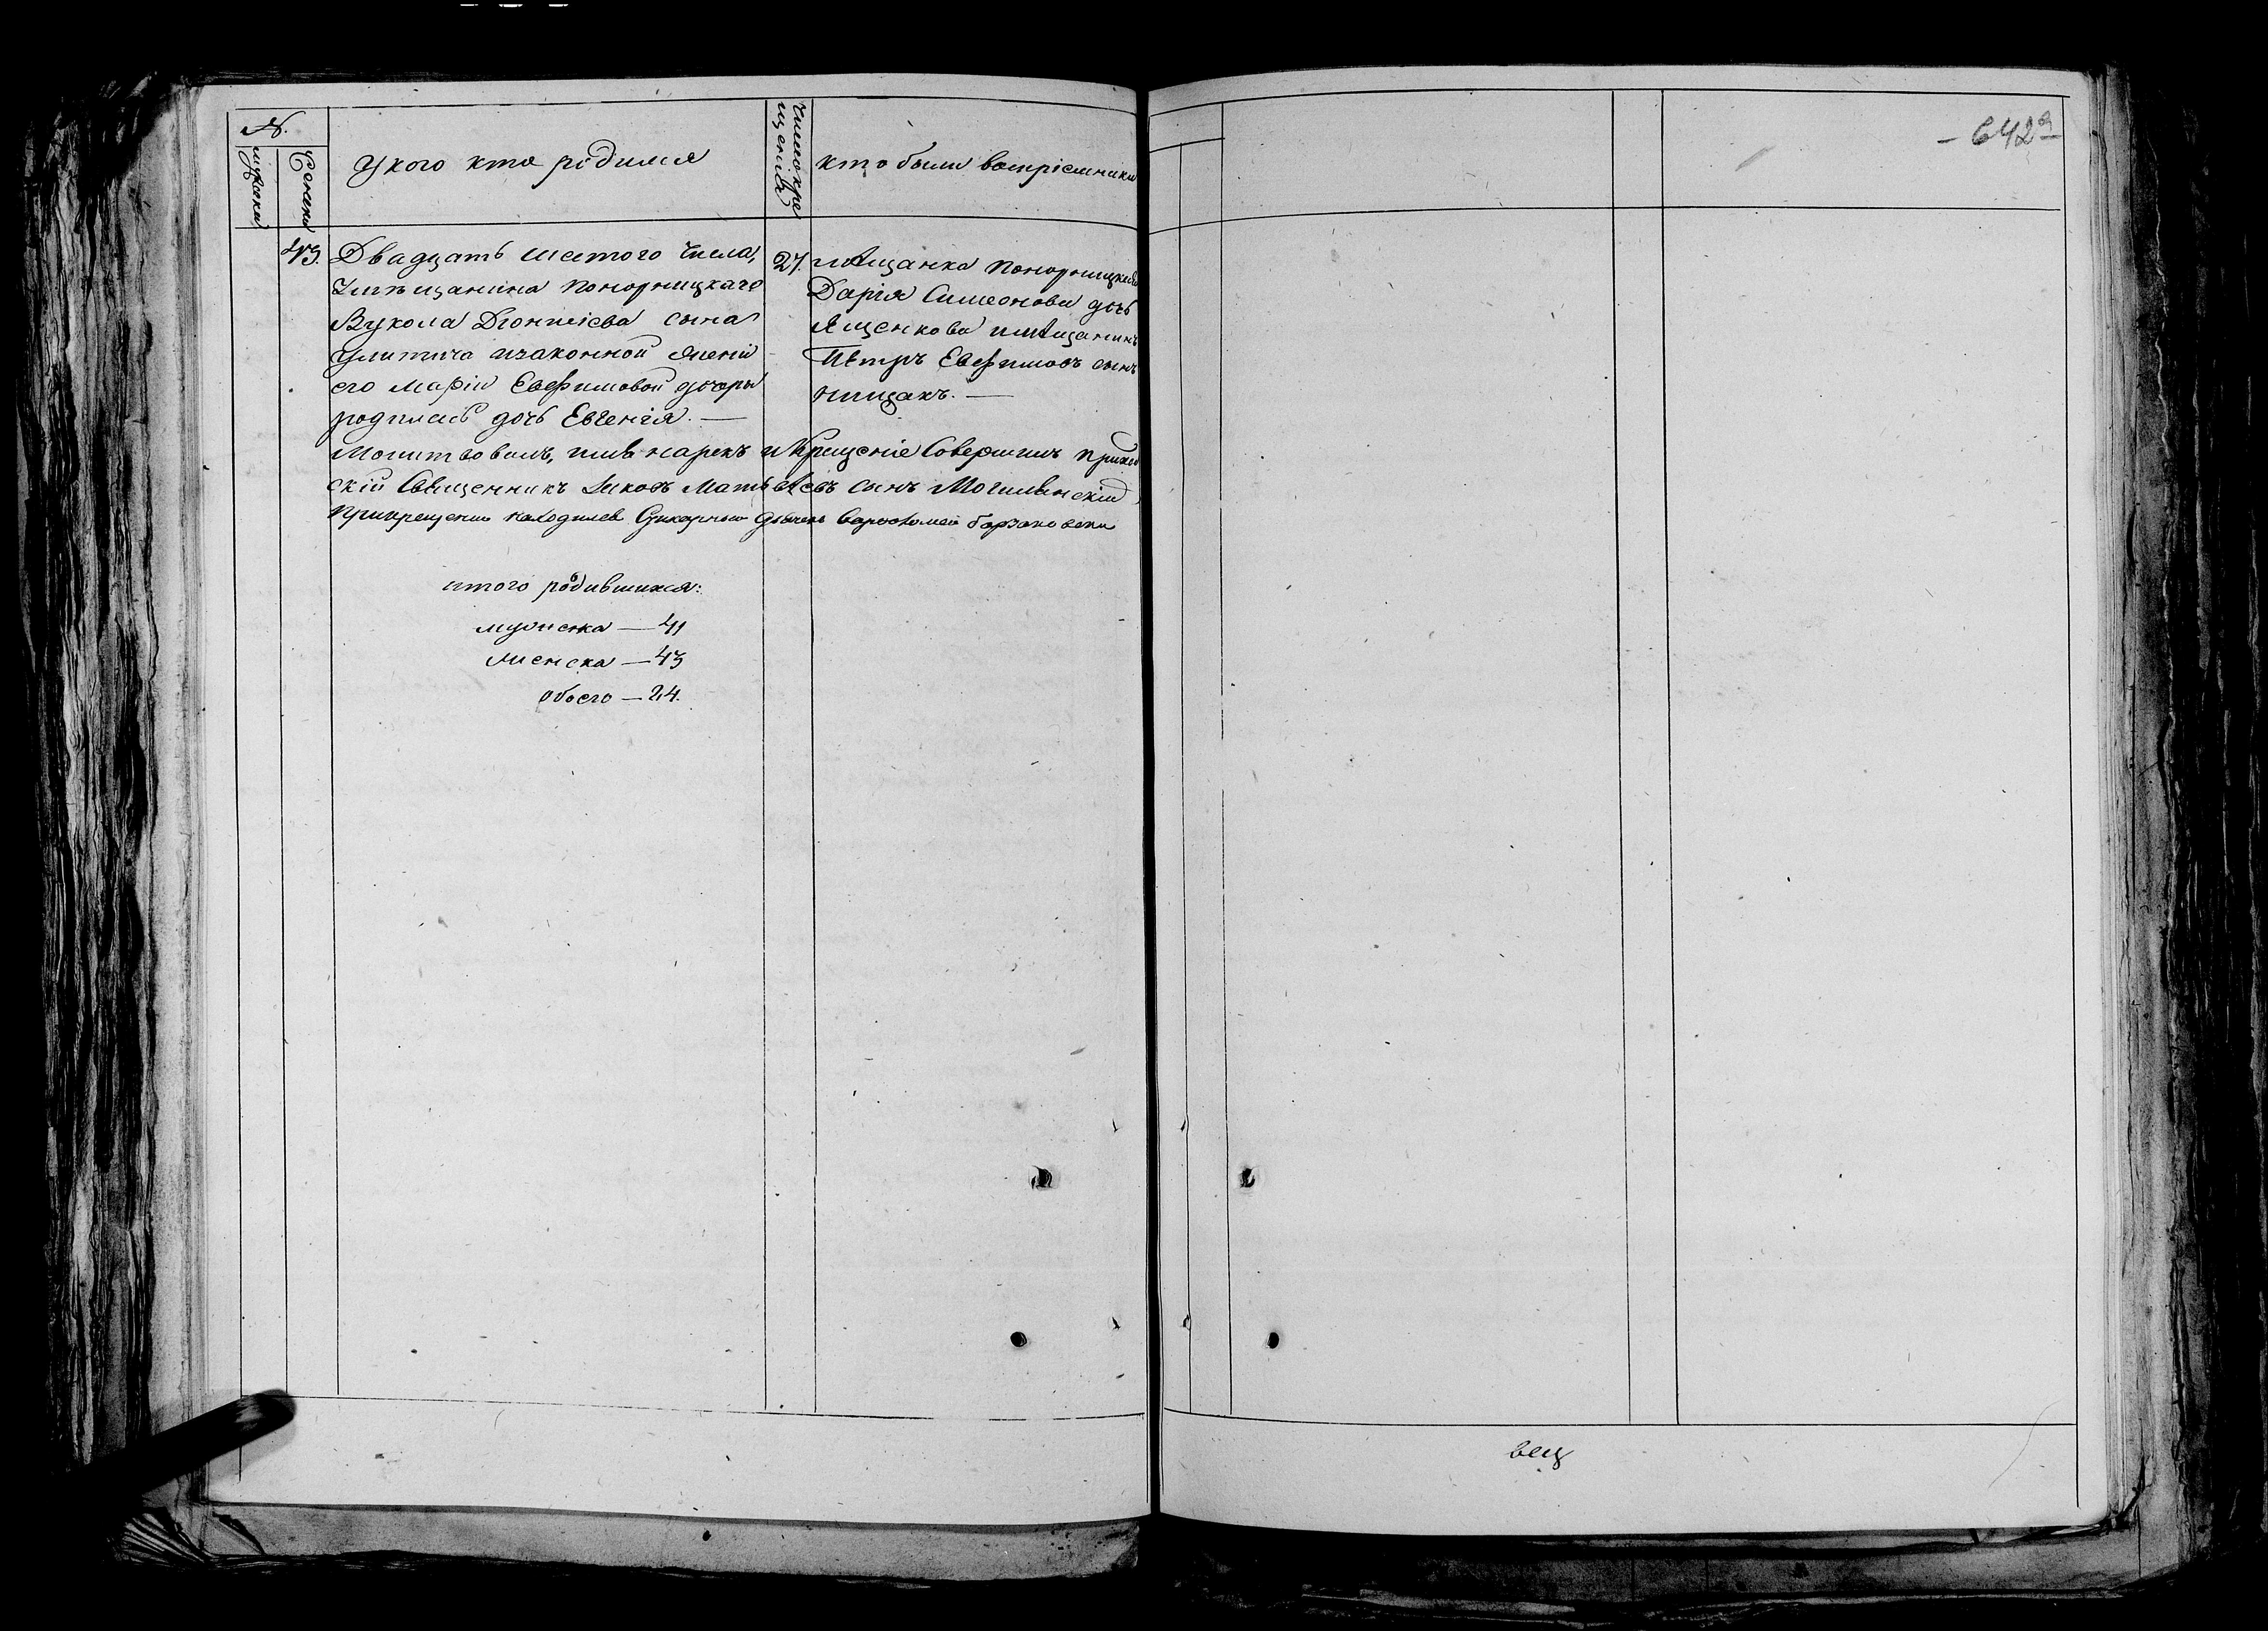 №.
мужска
Женска
У кого кто родился
Число кре
щенія
кто были воспріемники
- 642 а
43.
Двадцать шестого числа,
Умѣщанина Понорницкаго
Вукола Діонисіева сына
Улитича изаконной жены
его Марфіи Евфимовой дочеры
родилась дочь Евгенія. —
27.
мѣщанка Понорницкая
Дарія Симеонова дочь
Ященкова имѣщанинъ
Петръ Евфимовъ сынъ
Пищакъ. —
Молитвовалъ, имя нарекъ и Крещеніе Совершилъ прихо
скій Священникъ Іаковъ Матвѣевъ сынъ Могилянскій
Прикрещеніи находился Дьячекъ Варфоломей
итого родившихся:
мужска — 41
женска — 43
обоего — 84.
вец